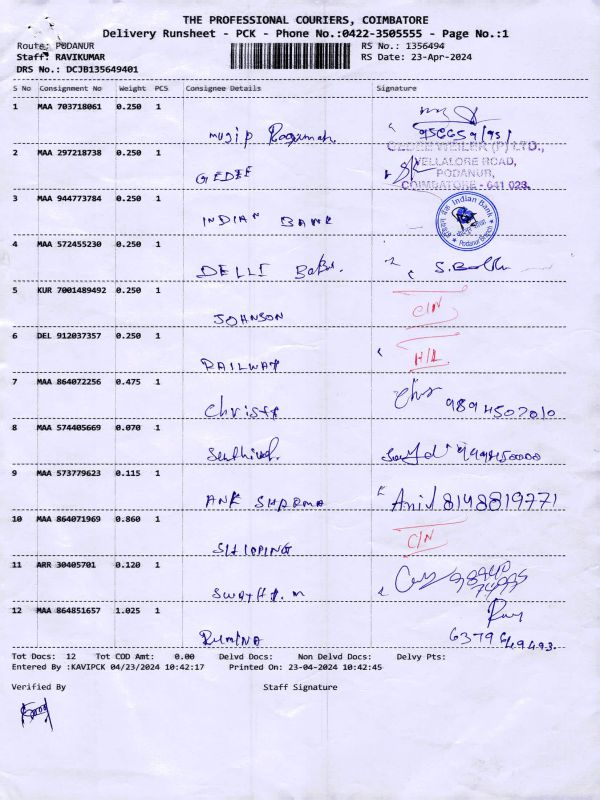 THE PROFESSIONAL COURIERS, COIMBATORE
Delivery Runsheet - PCK - Phone No.:0422-3505555 - Page No.:1
Route: PODANUR RS No.: 1356494
Staff: RAVIKUMAR RS Date: 23-Apr-2024
DRS No.: DCJB135649401
S No Consignment No Weight PCS Consignee Details Signature
1 MAA 703718061 0.250 1
mujip
2 MAA 297218738 0.250 1
GEDEE
GEDEE WEILER (P) LTD.,
VELLALORE ROAD,
PODANUR,
COIMBATORE - 641 023.
3 MAA 944773784 0.250 1
INDIAN BANK
Indian Bank
Podanur Branch
4 MAA 572455230 0.250 1
DELLI Babu.
5 KUR 7001489492 0.250 1
JOHNSON C/N
6 DEL 912037357 0.250 1
RAILWAY H/L
7 MAA 864072256 0.475 1
Christy 9894502010
8 MAA 574405669 0.070 1
Senthivel.
9 MAA 573779623 0.115 1
ANK SHARMA 8148819771
10 MAA 864071969 0.860 1
C/N
11 ARR 30405701 0.120 1
12 MAA 864851657 1.025 1
RUMINA 6379649493.
Tot Docs: 12 Tot COD Amt: 0.00 Delvd Docs: Non Delvd Docs: Delvy Pts:
Entered By :KAVIPCK 04/23/2024 10:42:17 Printed On: 23-04-2024 10:42:45
Verified By Staff Signature